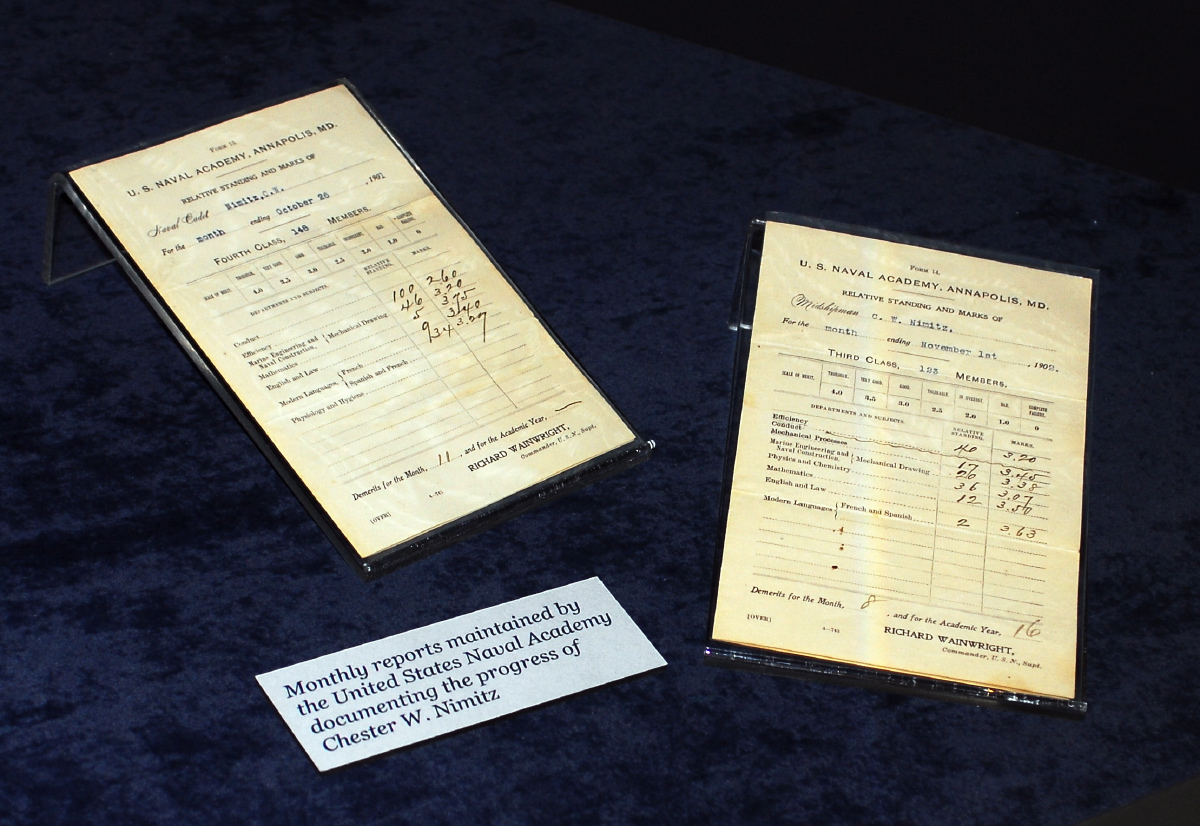 FORM 13.
U. S. NAVAL ACADEMY, ANNAPOLIS, MD.
RELATIVE STANDING AND MARKS OF
Naval Cadet Nimitz,C.W. , 1901
For the month ending October 26
FOURTH CLASS, 148 MEMBERS.
SCALE OF MERIT.
4.0 3.0 2.5 2.0 1.0 0
DEPARTMENTS AND SUBJECTS. RELATIVE STANDING. MARKS.
Conduct
Efficiency
Marine Engineering and Naval Construction, Mechanical Drawing 100 2.60
Mathematics 46 3.20
English and Law 5 3.75
Modern Languages, French 3.40
Spanish and French
Physiology and Hygiene
Demerits for the Month, 11 , and for the Academic Year,
RICHARD WAINWRIGHT,
Commander, U. S. N., Supt.
(OVER)
FORM 14.
U. S. NAVAL ACADEMY, ANNAPOLIS, MD.
RELATIVE STANDING AND MARKS OF
Midshipman C. W. Nimitz.
For the month ending November 1st , 1902.
THIRD CLASS, 123 MEMBERS.
SCALE OF MERIT. THOROUGH. VERY GOOD. GOOD. TOLERABLE. BAD. COMPLETE FAILURE.
4.0 3.5 3.0 2.5 2.0 1.0 0
DEPARTMENTS AND SUBJECTS. RELATIVE STANDING. MARKS.
Efficiency
Conduct
Mechanical Processes 40 3.20
Marine Engineering and Naval Construction, Mechanical Drawing 17 3.45
Physics and Chemistry 20 3.38
Mathematics 36 3.07
English and Law 12 3.50
Modern Languages French and Spanish 2 3.63
Demerits for the Month, 8 , and for the Academic Year, 16
(OVER)
RICHARD WAINWRIGHT,
Commander, U. S. N., Supt.
Monthly reports maintained by
the United States Naval Academy
documenting the progress of
Chester W. Nimitz